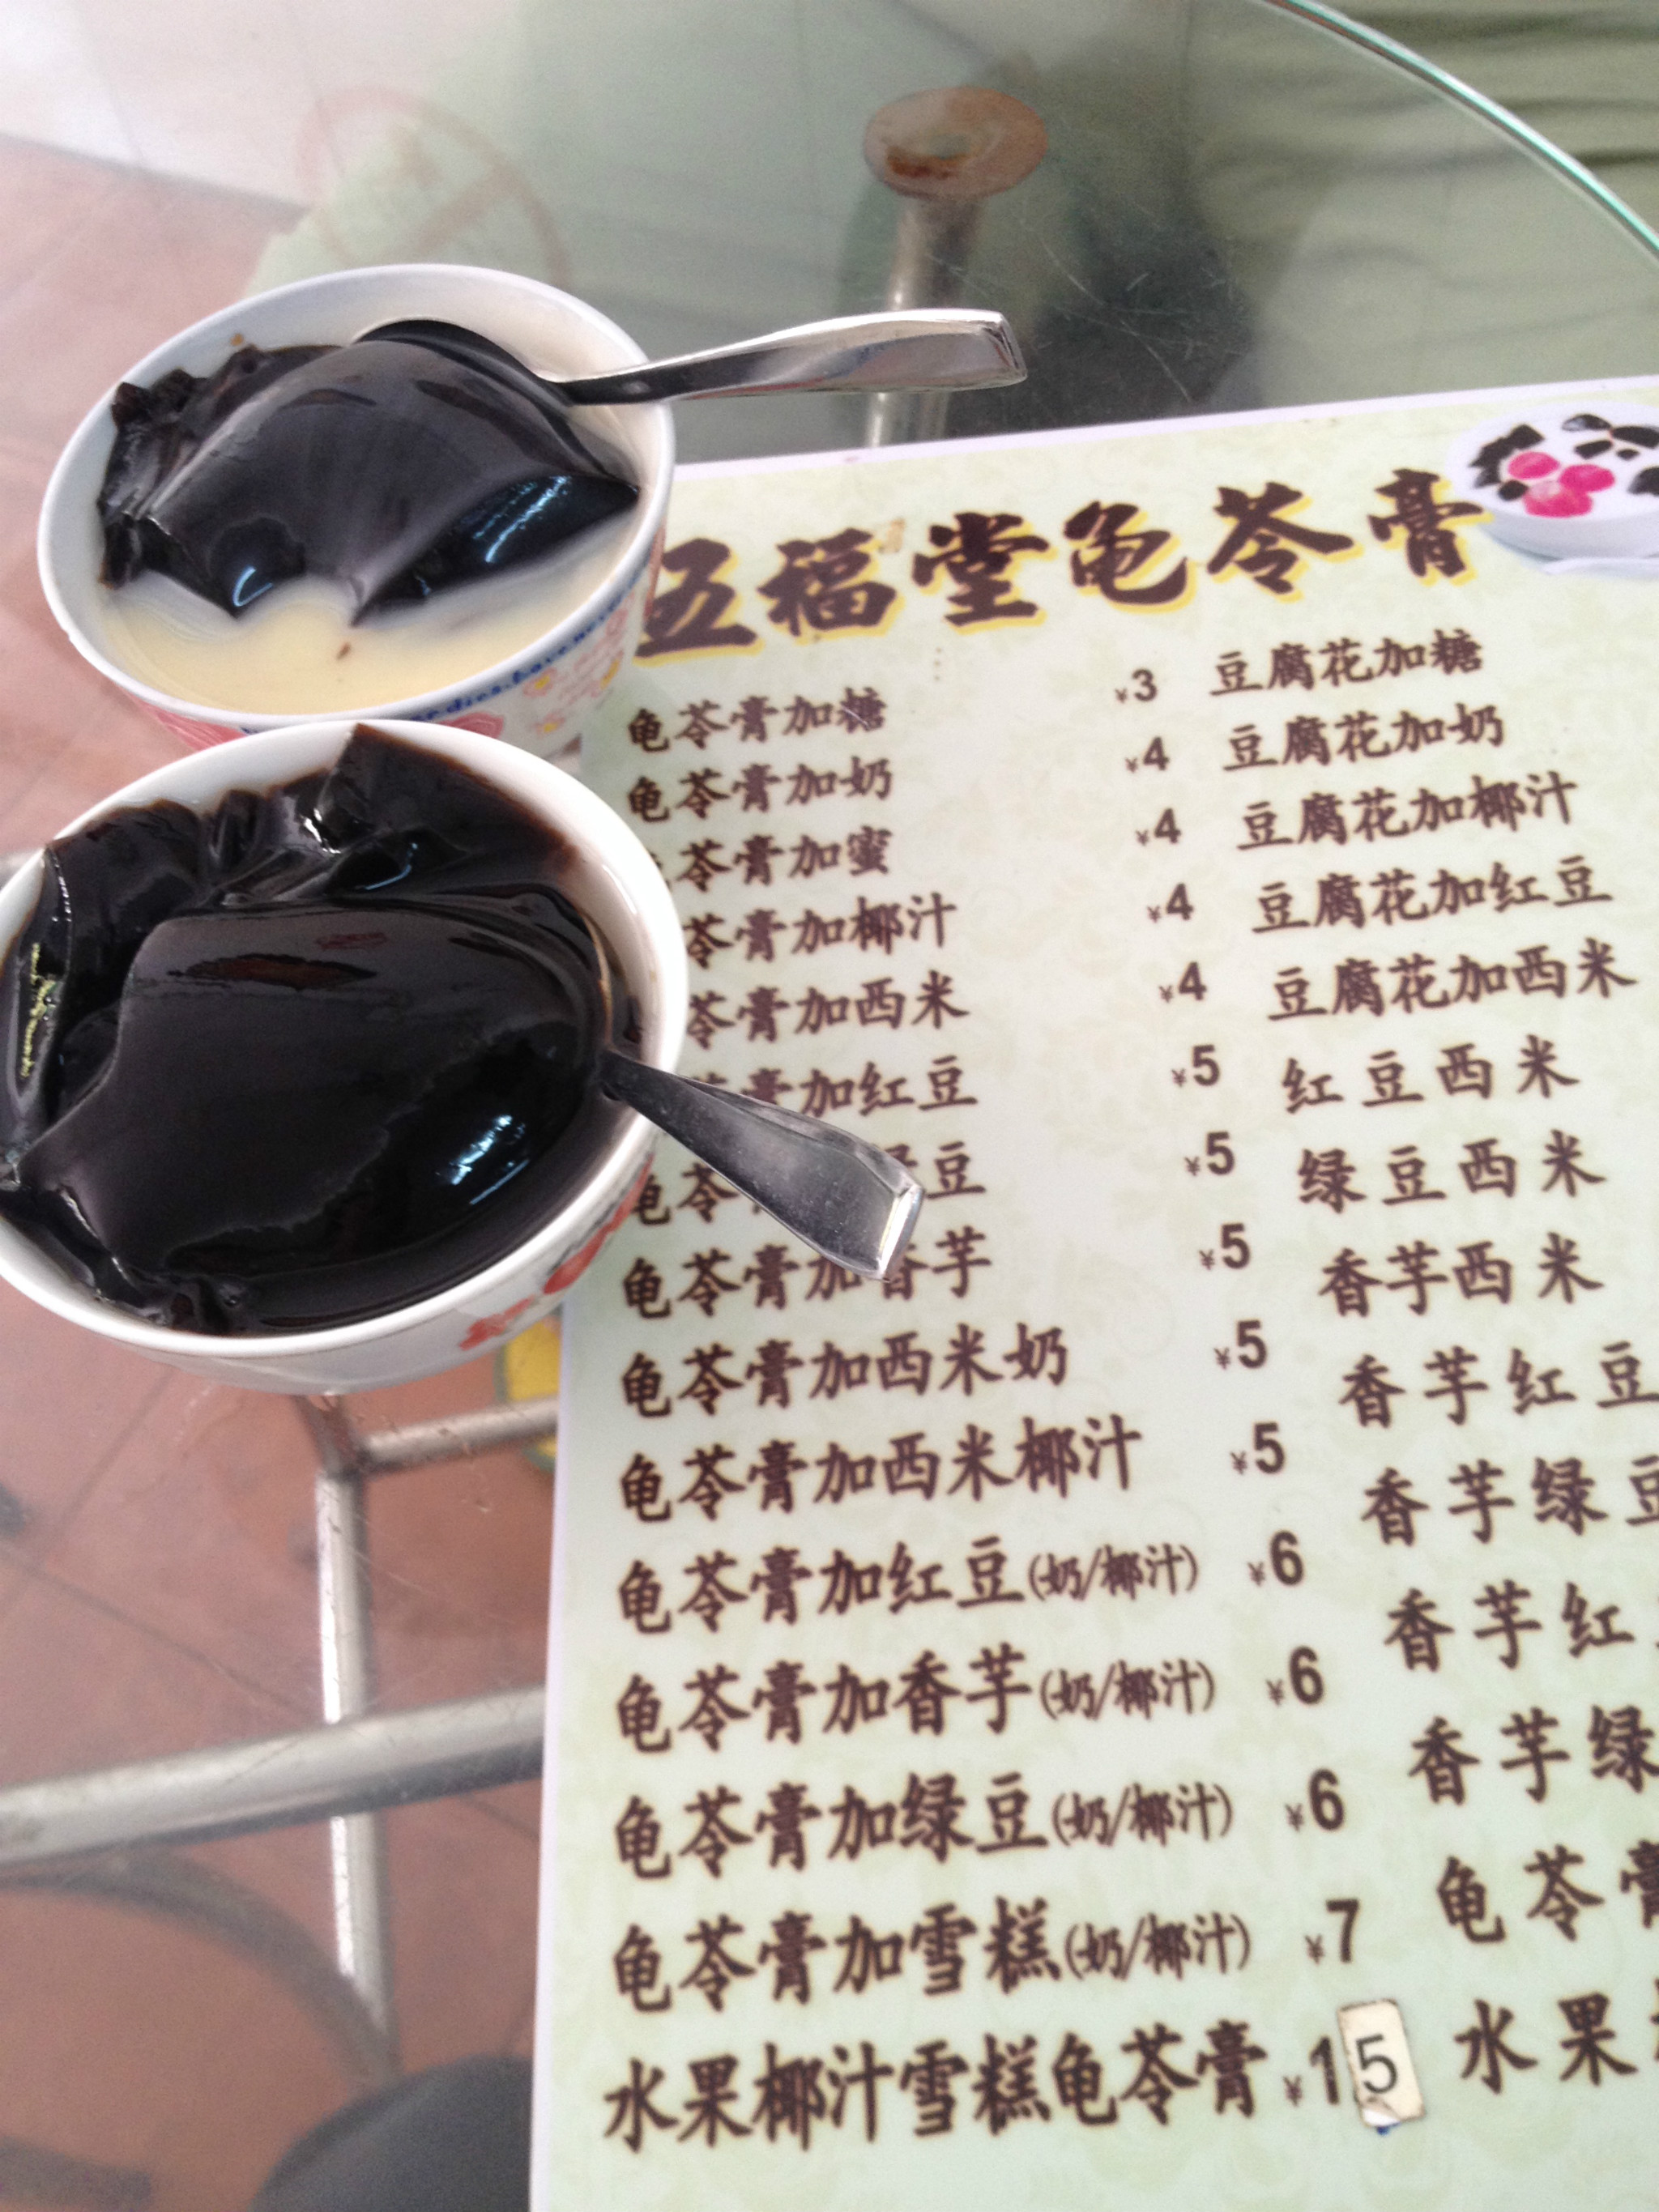 五福堂龟苓膏
龟苓膏加糖 ¥3
龟苓膏加奶 ¥4
苓膏加蜜 ¥4
苓膏加椰汁 ¥4
苓膏加西米 ¥4
膏加红豆 ¥5
龟苓 豆 ¥5
龟苓膏加香芋 ¥5
龟苓膏加西米奶 ¥5
龟苓膏加西米椰汁 ¥5
龟苓膏加红豆(奶/椰汁) ¥6
龟苓膏加香芋(奶/椰汁) ¥6
龟苓膏加绿豆(奶/椰汁) ¥6
龟苓膏加雪糕(奶/椰汁) ¥7
水果椰汁雪糕龟苓膏 ¥15
豆腐花加糖
豆腐花加奶
豆腐花加椰汁
豆腐花加红豆
豆腐花加西米
红豆西米
绿豆西米
香芋西米
香芋红豆
香芋绿豆
香芋红
香芋绿
龟苓膏
水果